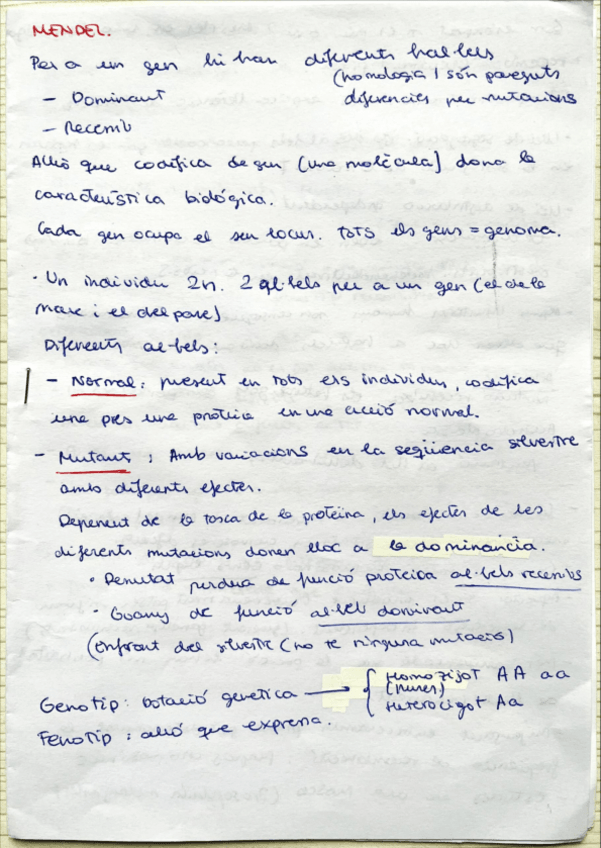 MENDEL.
Per a un gen hi han diferents hal·lels
(homologia / són pareguts
- Dominant diferencies per mutacions
- Recemb
Allò que codifica de gen (una molècula) dona la
característica biològica.
Cada gen ocupa el seu locus. TOTS els gens = genoma.
· Un individu 2n. 2 al·lels per a un gen (el de la
mare i el del pare)
Diferents al·lels:
- Normal: present en tots els individus, codifica
una proteina en una acció normal.
- Mutants: Amb variacions en la seqüencia silvestre
amb diferents efectes.
Depenent de la tasca de la proteina, els efectes de les
diferents mutacions donen lloc a la dominància.
· perdua de funció proteica al·lels recembs
· Guany de funció al·lel dominant
(Enfront del silvestre (no te ninguna mutació)
Genotip: dotació genetica → { Homozigot AA aa
(pures)
Heterocigot Aa
Fenotip: allò que expressa.